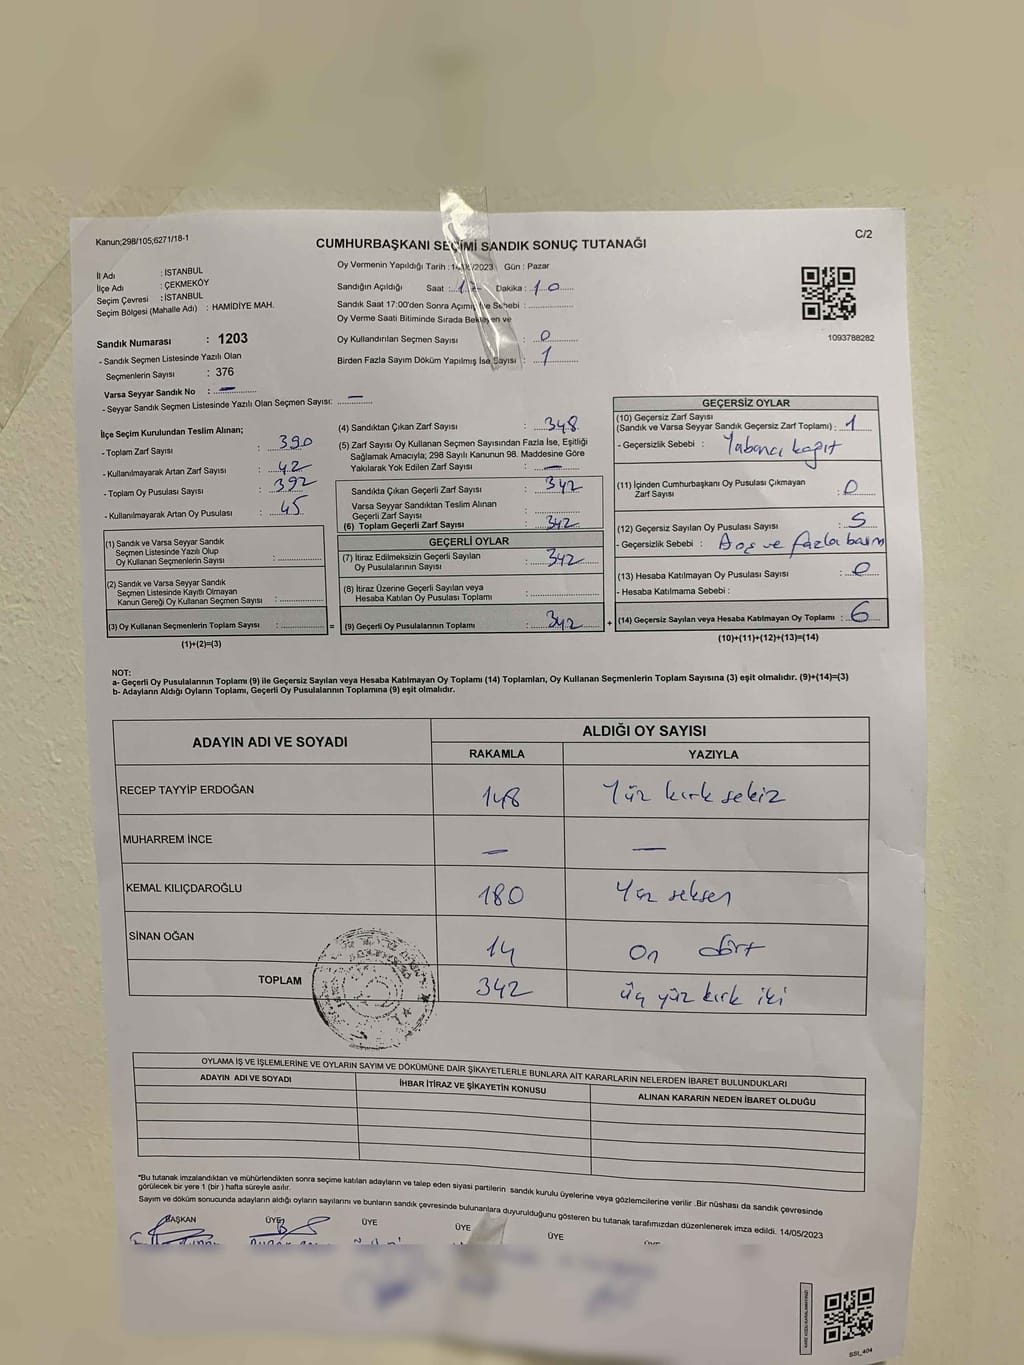 Kanun;298/105;6271/18-1
CUMHURBAŞKANI SEÇİMİ SANDIK SONUÇ TUTANAĞI
C/2
İl Adı : İSTANBUL
İlçe Adı : ÇEKMEKÖY
Seçim Çevresi : İSTANBUL
Seçim Bölgesi (Mahalle Adı) : HAMİDİYE MAH.
Sandık Numarası : 1203
- Sandık Seçmen Listesinde Yazılı Olan
Seçmenlerin Sayısı : 376
Varsa Seyyar Sandık No : —
- Seyyar Sandık Seçmen Listesinde Yazılı Olan Seçmen Sayısı: —
Oy Vermenin Yapıldığı Tarih : 2023 Gün : Pazar
Sandığın Açıldığı Saat : 17 Dakika : 10
Sandık Saat 17:00'den Sonra Açılmış İse Sebebi :
Oy Verme Saati Bitiminde Sırada Bekleyen ve
Oy Kullandırılan Seçmen Sayısı : 0
Birden Fazla Sayım Döküm Yapılmış İse Sayısı : 1
1093788282
İlçe Seçim Kurulundan Teslim Alınan;
- Toplam Zarf Sayısı : 390
- Kullanılmayarak Artan Zarf Sayısı : 42
- Toplam Oy Pusulası Sayısı : 392
- Kullanılmayarak Artan Oy Pusulası : 45
(1) Sandık ve Varsa Seyyar Sandık
Seçmen Listesinde Yazılı Olup
Oy Kullanan Seçmenlerin Sayısı :
(2) Sandık ve Varsa Seyyar Sandık
Seçmen Listesinde Kayıtlı Olmayan
Kanun Gereği Oy Kullanan Seçmen Sayısı :
(3) Oy Kullanan Seçmenlerin Toplam Sayısı :
(1)+(2)=(3)
(4) Sandıktan Çıkan Zarf Sayısı : 348
(5) Zarf Sayısı Oy Kullanan Seçmen Sayısından Fazla İse, Eşitliği
Sağlamak Amacıyla; 298 Sayılı Kanunun 98. Maddesine Göre
Yakılarak Yok Edilen Zarf Sayısı : —
Sandıkta Çıkan Geçerli Zarf Sayısı : 342
Varsa Seyyar Sandıktan Teslim Alınan
Geçerli Zarf Sayısı :
(6) Toplam Geçerli Zarf Sayısı : 342
GEÇERLİ OYLAR
(7) İtiraz Edilmeksizin Geçerli Sayılan
Oy Pusulalarının Sayısı : 342
(8) İtiraz Üzerine Geçerli Sayılan veya
Hesaba Katılan Oy Pusulası Toplamı :
= (9) Geçerli Oy Pusulalarının Toplamı : 342 +
GEÇERSİZ OYLAR
(10) Geçersiz Zarf Sayısı
(Sandık ve Varsa Seyyar Sandık Geçersiz Zarf Toplamı) : 1
- Geçersizlik Sebebi : Yabancı kağıt
(11) İçinden Cumhurbaşkanı Oy Pusulası Çıkmayan
Zarf Sayısı : 0
(12) Geçersiz Sayılan Oy Pusulası Sayısı : 5
- Geçersizlik Sebebi : Boş ve fazla basım
(13) Hesaba Katılmayan Oy Pusulası Sayısı : 0
- Hesaba Katılmama Sebebi :
(14) Geçersiz Sayılan veya Hesaba Katılmayan Oy Toplamı : 6
(10)+(11)+(12)+(13)=(14)
NOT:
a- Geçerli Oy Pusulalarının Toplamı (9) ile Geçersiz Sayılan veya Hesaba Katılmayan Oy Toplamı (14) Toplamları, Oy Kullanan Seçmenlerin Toplam Sayısına (3) eşit olmalıdır. (9)+(14)=(3)
b- Adayların Aldığı Oyların Toplamı, Geçerli Oy Pusulalarının Toplamına (9) eşit olmalıdır.
ADAYIN ADI VE SOYADI
ALDIĞI OY SAYISI
RAKAMLA YAZIYLA
RECEP TAYYİP ERDOĞAN 148 Yüz kırk sekiz
MUHARREM İNCE — —
KEMAL KILIÇDAROĞLU 180 Yüz seksen
SİNAN OĞAN 14 On dört
TOPLAM 342 üç yüz kırk iki
OYLAMA İŞ VE İŞLEMLERİNE VE OYLARIN SAYIM VE DÖKÜMÜNE DAİR ŞİKAYETLERLE BUNLARA AİT KARARLARIN NELERDEN İBARET BULUNDUKLARI
ADAYIN ADI VE SOYADI İHBAR İTİRAZ VE ŞİKAYETİN KONUSU ALINAN KARARIN NEDEN İBARET OLDUĞU
*Bu tutanak imzalandıktan ve mühürlendikten sonra seçime katılan adayların ve talep eden siyasi partilerin sandık kurulu üyelerine veya gözlemcilerine verilir .Bir nüshası da sandık çevresinde
görülecek bir yere 1 (bir ) hafta süreyle asılır.
Sayım ve döküm sonucunda adayların aldığı oyların sayılarını ve bunların sandık çevresinde bulunanlara duyurulduğunu gösteren bu tutanak tarafımızdan düzenlenerek imza edildi. 14/05/2023
BAŞKAN ÜYE ÜYE ÜYE ÜYE ÜYE
SSL_404